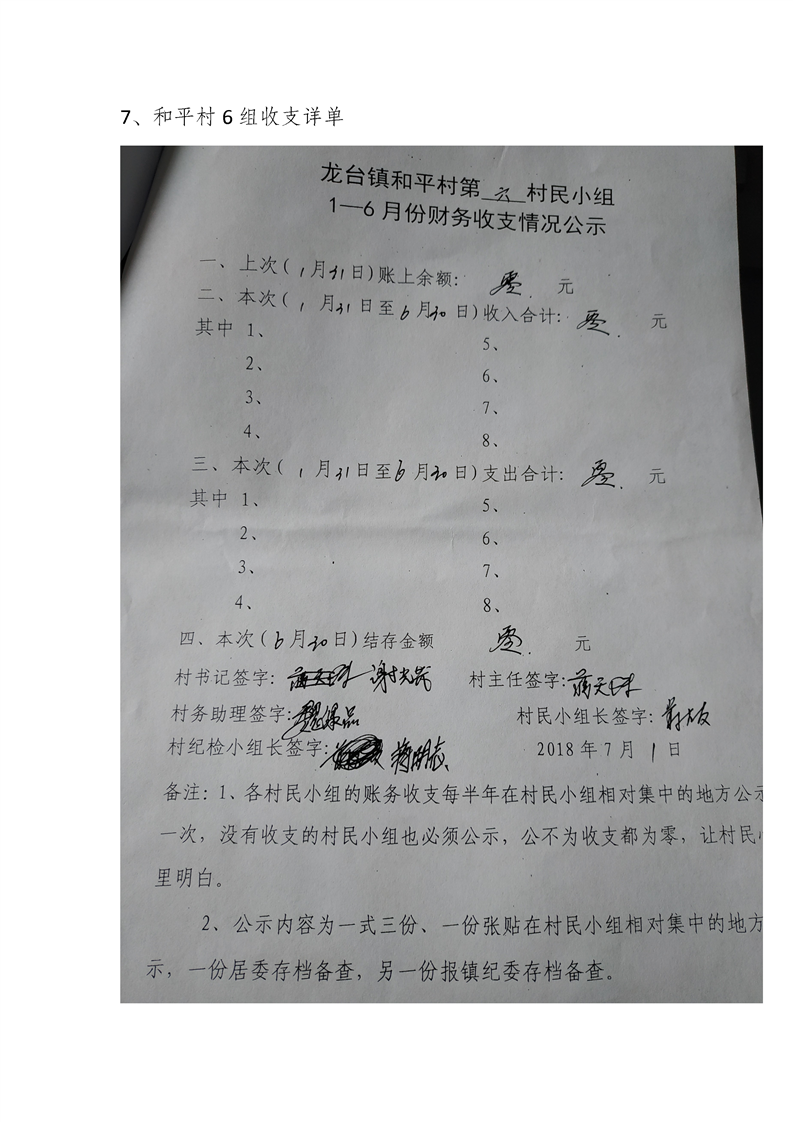 7、和平村 6 组收支详单
龙台镇和平村第 六 村民小组
1—6 月份财务收支情况公示
一、上次( 1 月31 日)账上余额: 零. 元
二、本次( 1 月31 日至 6 月30 日)收入合计: 零. 元
其中 1、 5、
2、 6、
3、 7、
4、 8、
三、本次( 1 月31 日至 6 月30 日)支出合计: 零. 元
其中 1、 5、
2、 6、
3、 7、
4、 8、
四、本次( 6 月30 日)结存金额 零. 元
村书记签字: 村主任签字:
村务助理签字: 村民小组长签字:
村纪检小组长签字: 2018 年 7 月 1 日
备注: 1、各村民小组的账务收支每半年在村民小组相对集中的地方公示
一次，没有收支的村民小组也必须公示，公不为收支都为零，让村民
里明白。
2、公示内容为一式三份、一份张贴在村民小组相对集中的地方
示，一份居委存档备查，另一份报镇纪委存档备查。